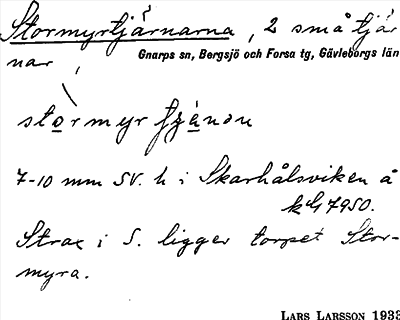 Stormyrtjärnarna, 2 små tjär
nar,
Gnarps sn, Bergsjö och Forsa tg, Gävleborgs län
7-10 mm SV. h i Skarhålsviken å
7950.
Strax i S. ligger torpet Stor-
myra.
LARS LARSSON 1933